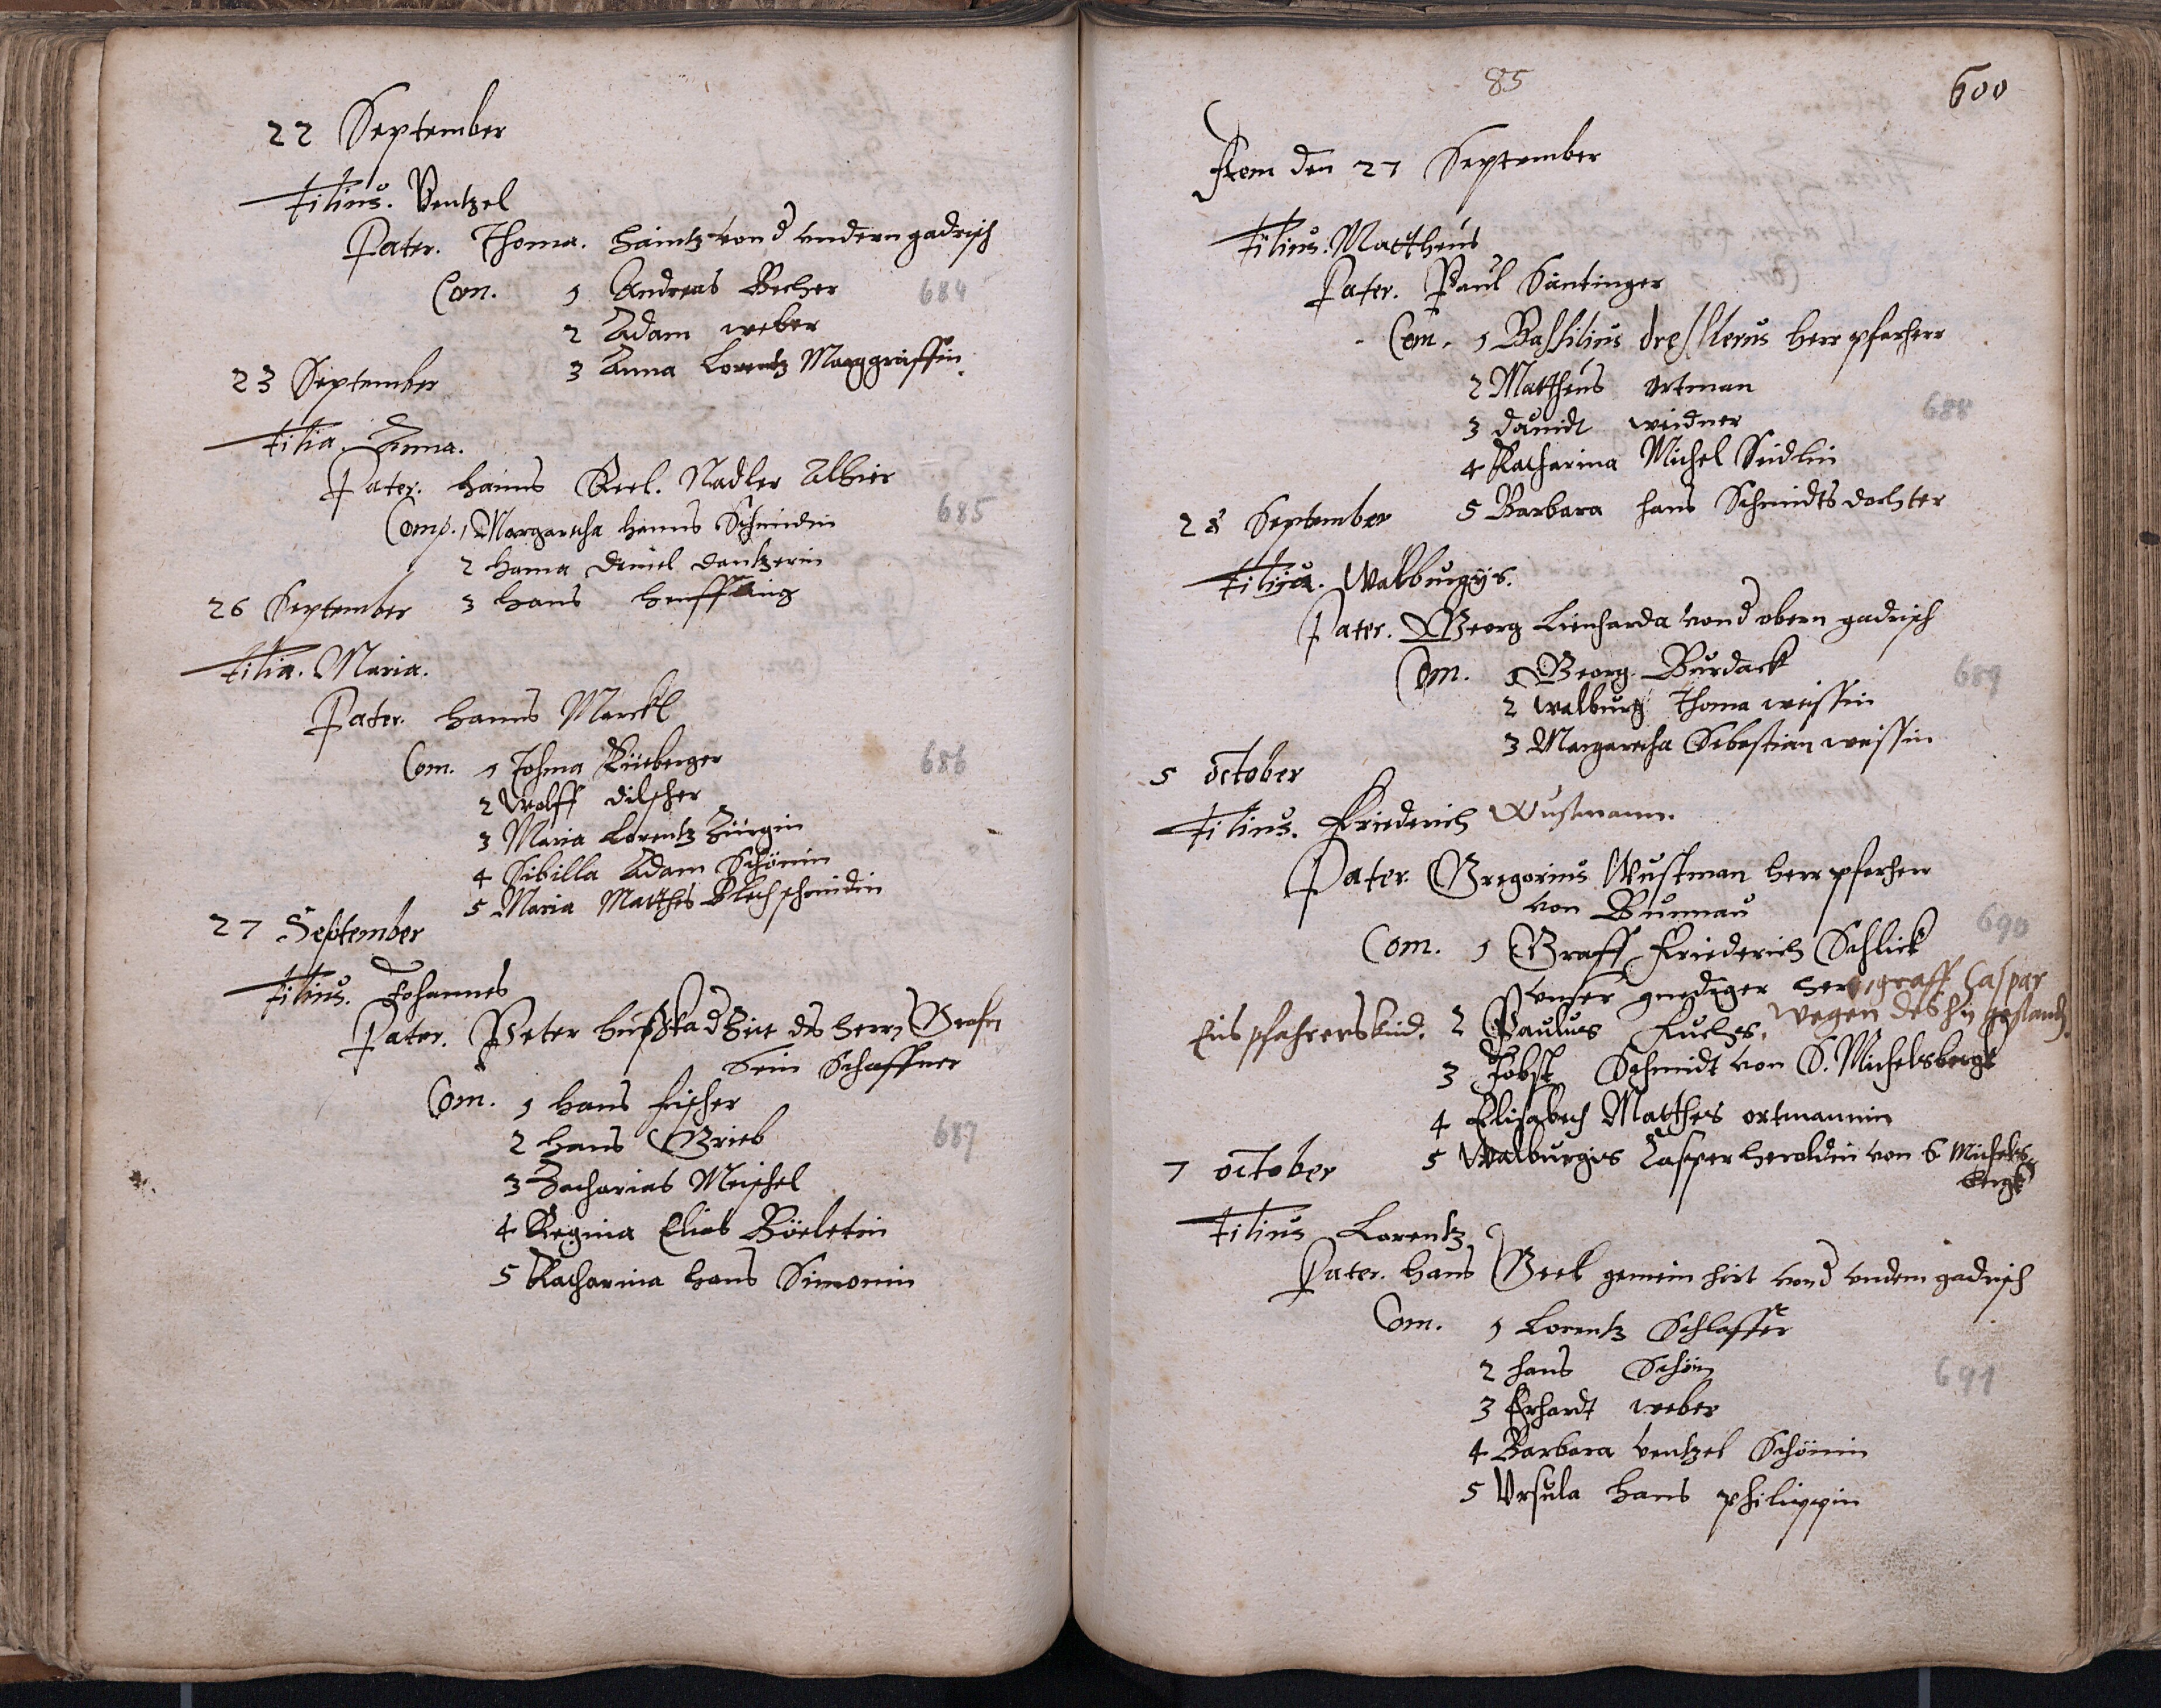 22 September
Filius. Ventzel
Pater. Thoma. Haintz von d undern gadrisch
Com. 1 Andreas Becher 684
2 Adam weber
3 Anna Lorentz Marggräffin.
23 September
Filia. Anna.
Pater. Hanns Keel. Nadler Alhier
Comp. 1 Margaretha Hanns Schmidin 685
2 Hanna Daniel Dantzerin
3 Hans
26 September
Filia. Maria.
Pater. Hanns Marckl
Com. 1 686
2 Wolff Dilscher
3 Maria Lorentz Zürgin
4 Sibilla Adam Schönin
5 Maria Matthes Blechschmidin
27 September
Filius. Johannes
Pater. Peter des Herrn Grafen
Sein Schaffner
Com. 1 Hans Fischer
2 Hans Grieb 687
3 Zacharias Meischel
4 Regina Elias
5 Katharina Hans Simonin
85 600
Item den 27 September
Filius. Mattheus
Pater. Paul Säntinger
Com. 1 Bassilius Dresslerus herr pfarherr
2 Mattheus Ortman 688
3 Dauidt weidner
4 Katharina Michel Seidlin
5 Barbara Hans Schmidts dochter
28 September
Filia. Walburgis.
Pater. Georg Lienharda von d obern gadrisch
Com. 1 Georg Burdack 689
2 Walburg Thoma weissin
3 Margaretha Sebastian weissin
5 october
Filius. Friederich Wustmann.
Pater. Gregorius Wustman herr pfarherr
von Bunnau
Com. 1 Graff Friederich Schlick 690
unser gnediger herr graff Caspar
Eins pfahrers kind. 2 Paulus Fuchs. wegen des
3 Jobst Schmidt von S. Michelsbergk
4 Elisabeth Matthes ortmannin
5 Walburgis Casper Heroldin von S Michels
bergk
7 october
Filius Lorentz
Pater. Hans Beck gemein hirt von d undern gadrisch
Com. 1 Lorentz Schlosser
2 Hans Schön 691
3 Erhardt weber
4 Barbara Ventzel Schönin
5 Vrsula Hans philippin